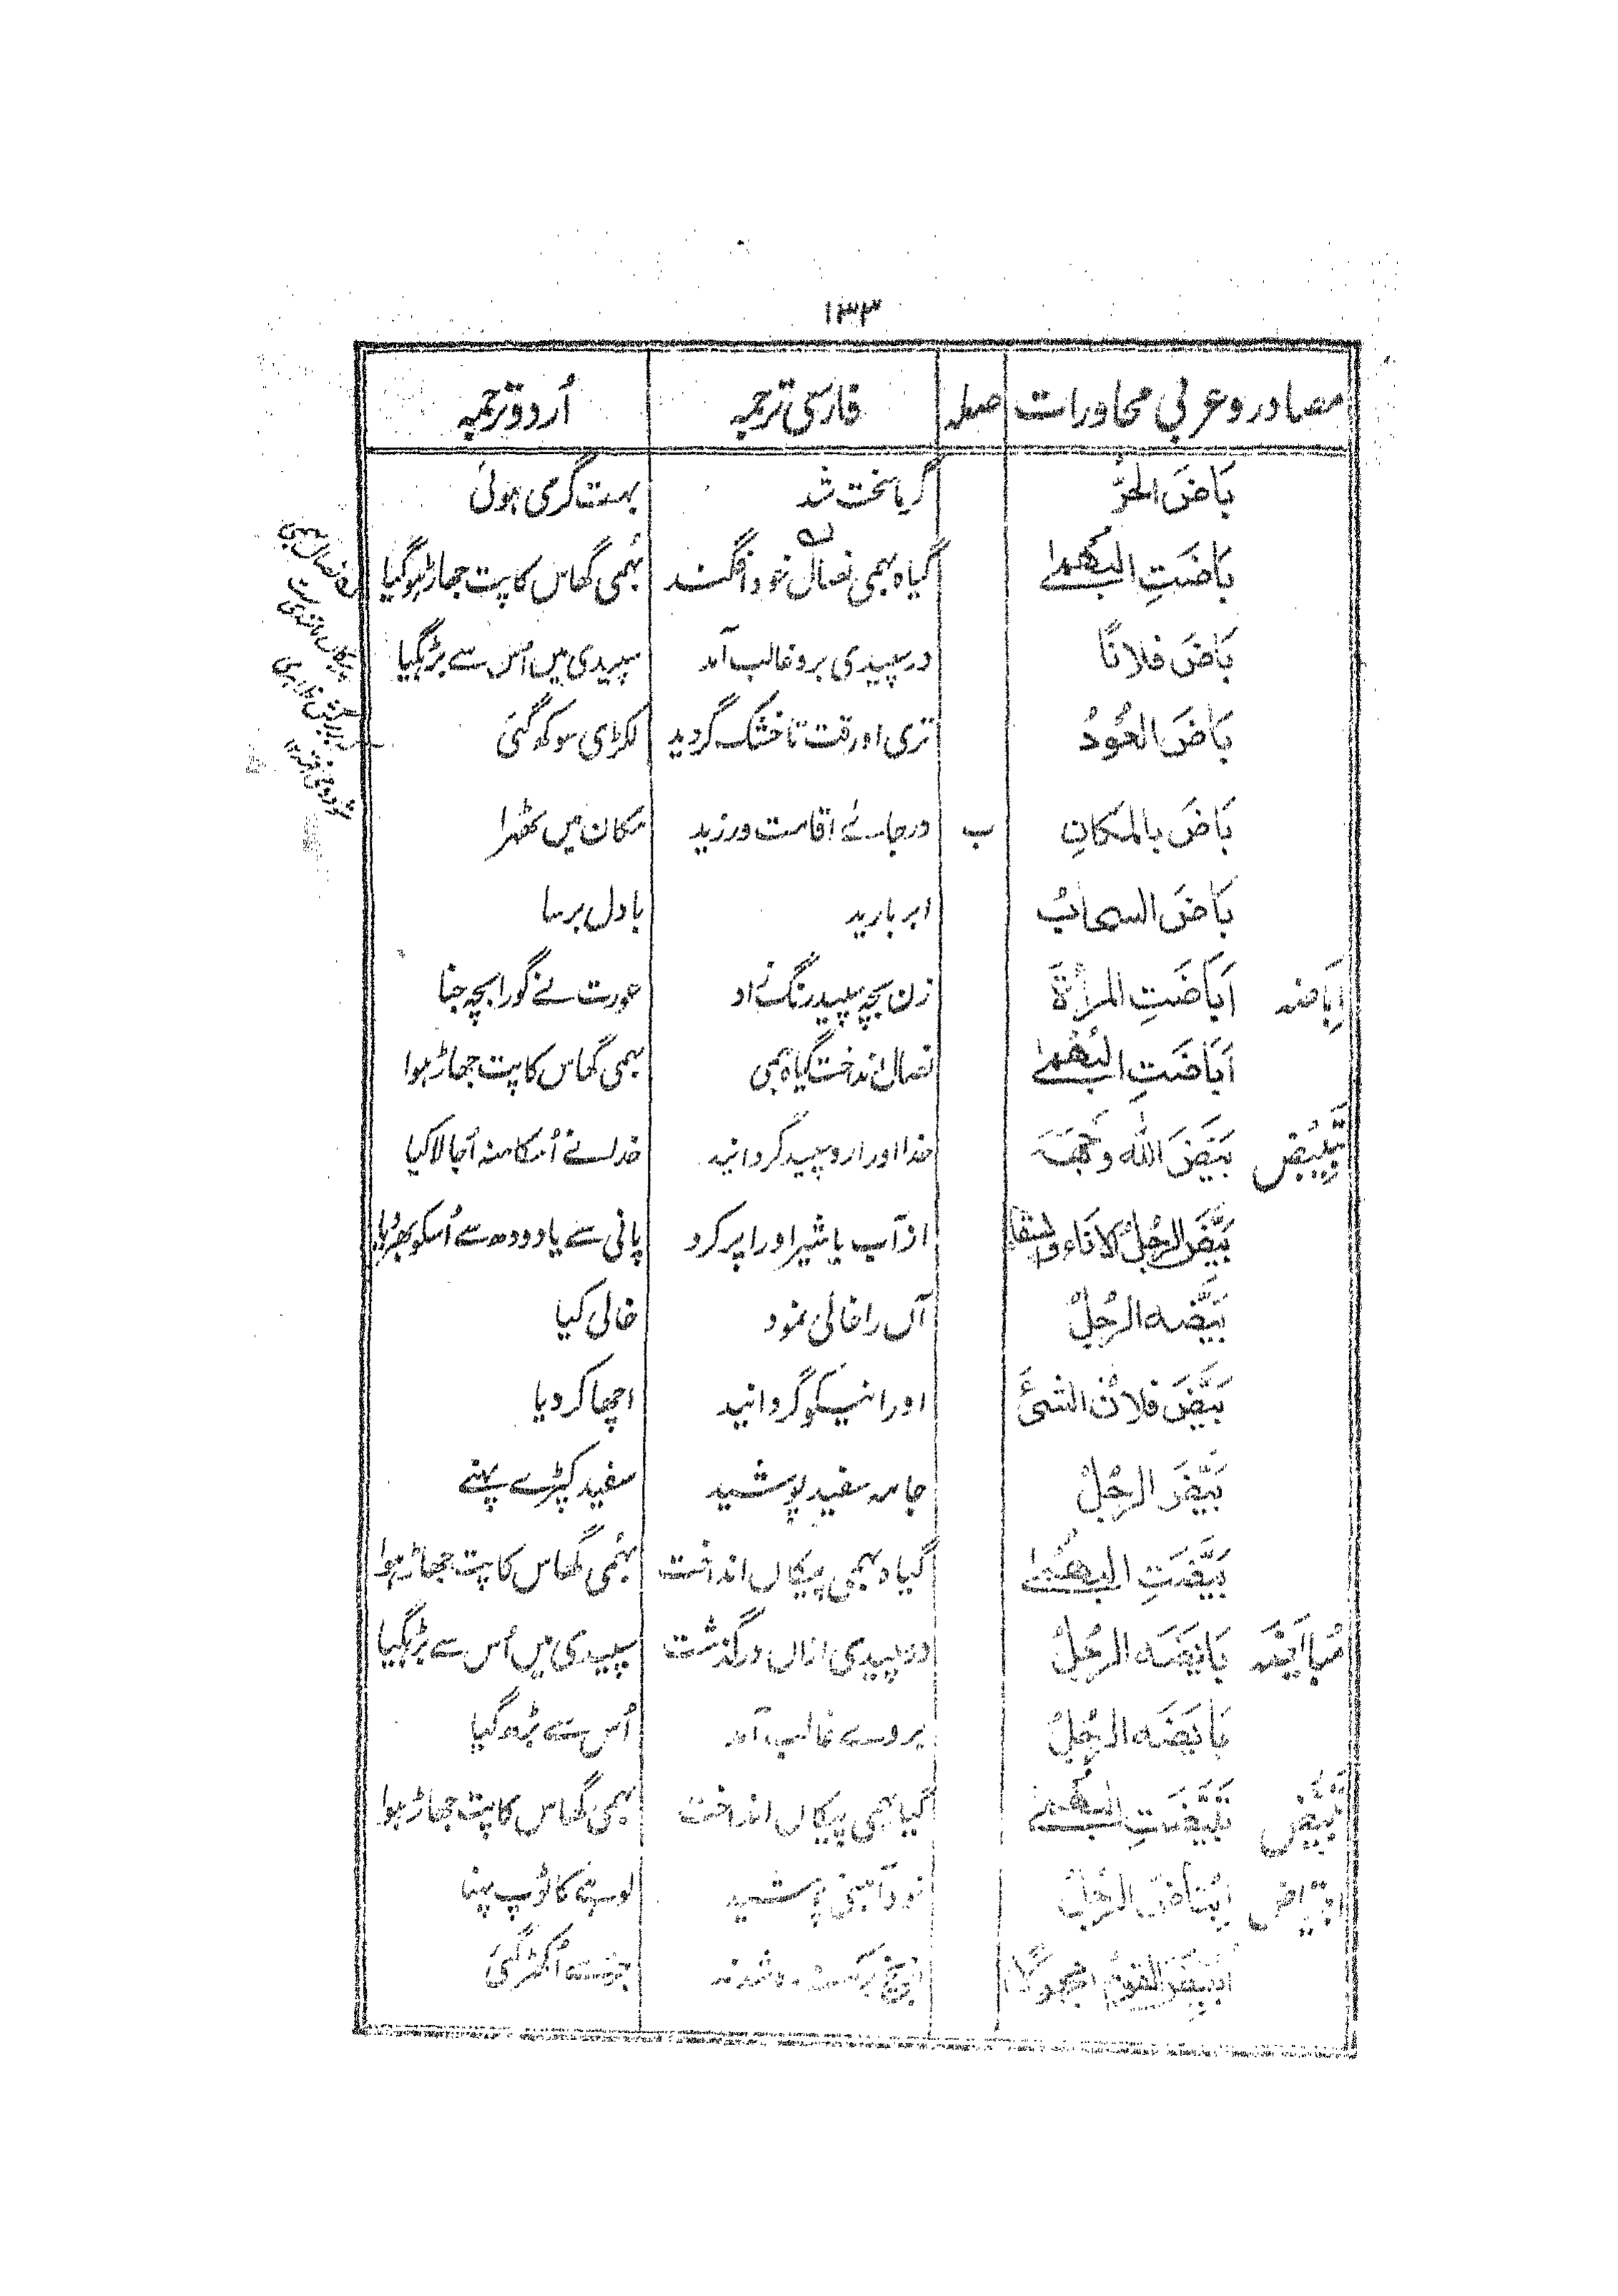 ۱۳۳
مصادر و عربی محاورات صلہ فارسی ترجمہ اُردو ترجمہ
بَاضَ الحَرُّ گرما سخت شد بہت گرمی ہوئی
بَاضَتِ البُهْمٰى گیاہ بہمی نصال خود افگند بُہمی گھاس کا پت جھاڑ ہوگیا
بَاضَ فلانًا در سپیدی برو غالب آمد سپیدی میں اُس سے بڑہگیا
بَاضَ العُودُ تری او رفت تا خشک گردید لکڑی سوکھ گئی
بَاضَ بالمَکانِ ب در جائے اقامت ورزید مکان میں ٹھہرا
بَاضَ السحابُ ابر بارید بادل برسا
اِبَاضہ اَبَاضَتِ المرأۃُ زن بچہ سپید رنگ زاد عورت نے گورا بچہ جنا
اَبَاضَتِ البُهْمٰى نصال انداخت گیاہ بہمی بہمی گھاس کا پت جھاڑ ہوا
تَبْیِیْض بَیَّضَ اللّٰه وَجْهَهٗ خدا او را رو سپید گردانید خدا نے اُسکا منہ اُجالا کیا
بَیَّضَ الرجُلُ الاناء والسقاء از آب یا شیر او را پر کرد پانی سے یا دودھ سے اُسکو بھر دیا
بَیَّضه الرجُلُ آں را خالی نمود خالی کیا
بَیَّضَ فلانٌ الشیَٔ او را نیکو گردانید اچھا کر دیا
بَیَّضَ الرجُلُ جامہ سفید پوشید سفید کپڑے پہنے
بَیَّضَتِ البُهْمٰى گیاہ بہمی پیکاں انداخت بہُمی گھاس کا پت جھاڑ ہوا
مُبَایَضَہ بَایَضَه الرجُلُ در سپیدی ازاں درگذشت سپیدی میں اُس سے بڑہگیا
بَایَضَه الرجُلُ بروے غالب آمد اُس سے بڑھ گیا
تَبَیُّض تَبَیَّضَتِ البُهْمٰى گیاہ بہمی پیکاں انداخت بہمی گھاس کا پت جھاڑ ہوا
ابتیاض اِبْتَاضَ الرجُلُ خود آہنی پوشید لوہے کا ٹوپ پہنا
اُبْتِیضَ القومُ مجہولًا